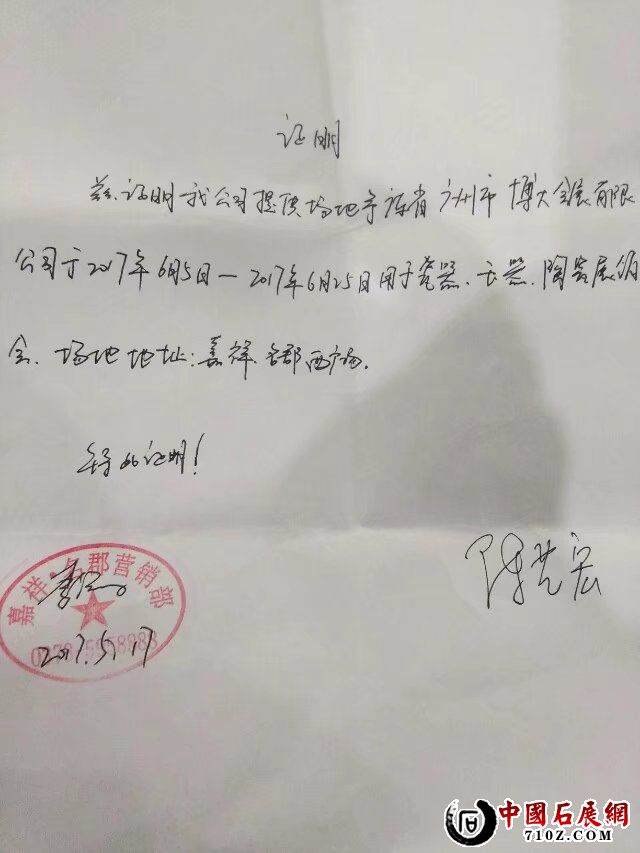 证明
兹证明我公司提供场地予 广州市博大会展有限
公司于2017年6月5日—2017年6月25日用于瓷器、玉器、陶瓷展销
会、场地地址：嘉祥名郡西广场。
特此证明！
嘉祥名郡营销部
2017.5.17
中國石展網
710Z.COM